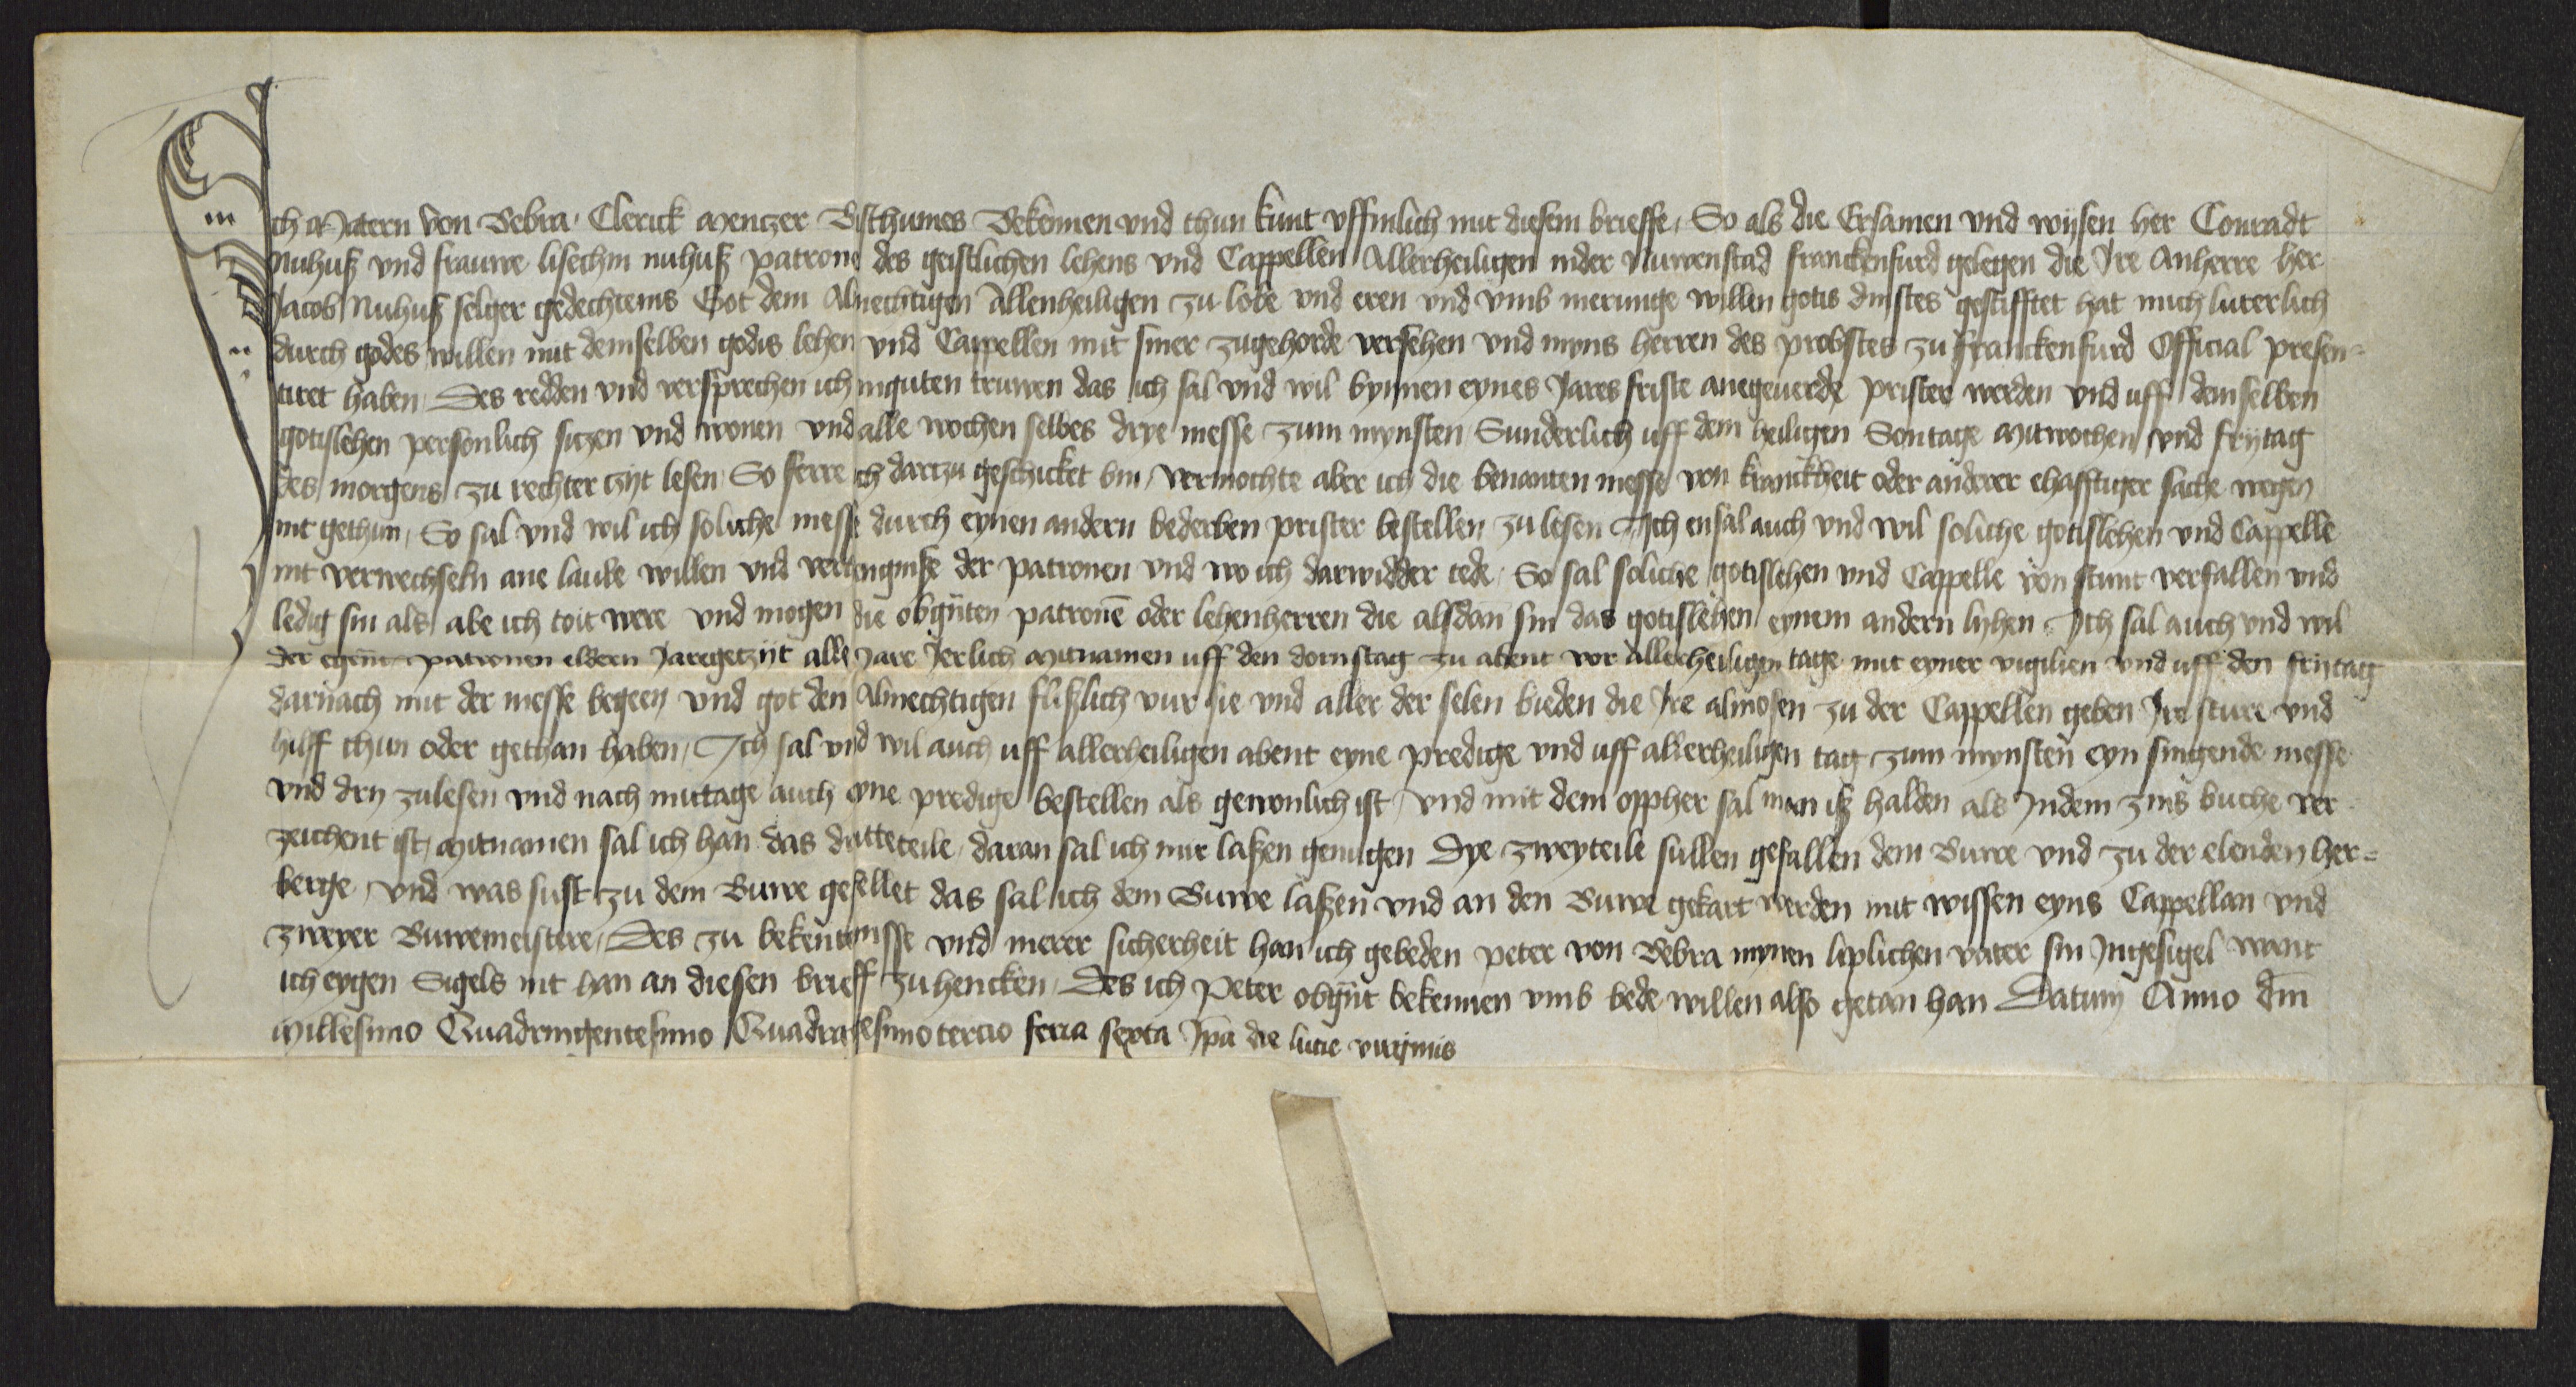 Ich Matern von Bebra Clerick Mentzer Bisthumes Bekennen vnd thun kunt vffinlich mit diesem brieffe, So als die Ersamen vnd wijsen her Conradt
nuhuß vnd frauwe lisechin nuhuß patrone des geistlichen lehens vnd Cappellen Allerheiligen inder Nuwenstad franckenfurd gelegen die Ire Anherre her
Jacob Nuhuß selger gedechtenis Got dem Almechtigen Allenheiligen zu lobe vnd eren vnd vmb merunge willen gotis dinstes gestifftet hat mich luterlich
durch godes willen mit demselben godis lehen vnd Cappellen mit siner zugehorde versehen vnd myns herren des probstes zu franckenfurd Official presen-
tiret haben, Des redden vnd versprechen ich inguten truwen das ich sal vnd wil bynnen eynes Jares friste anegeuerde prister werden vnd uff demselben
gotislehen personlich sitzen vnd wonen vnd alle wochen selbes drye messe zum mynsten Sunderlich uff dem heiligen Sontage Mitwochen vnd frijtag
des morgens zu rechter zijt lesen So ferre ich dartzu geschicket bin, vermochte aber ich die benanten messe von kranckheit oder anderer ehafftiger sache wegen
nit gethun, So sal vnd wil ich soliche messe durch eynen andern bederben prister bestellen zu lesen Ich ensal auch vnd wil soliche gotislehen vnd Cappelle
nit verwechseln ane laube willen vnd verhengniße der patronen vnd wo ich darwidder tede, So sal soliche gotislehen vnd Cappelle von stunt verfallen vnd
ledig sin als abe ich toit were vnd mogen die obgnten patrone oder lehenherren die alsdan sin das gotislehen eynem andern lyhen Ich sal auch vnd wil
der egent patronen eldern Jaregetzijt alle Jare Jerlich mitnamen uff den dornstag zu abent vor Allerheiligen tage mit eyner vigilien vnd uff den frijtag
darnach mit der messe begeen vnd got den Almechtigen flißlich vur sie vnd aller der selen bieden die Ire almosen zu der Cappellen geben Ire sture vnd
hilff thun oder gethan haben, Ich sal vnd wil auch uff allerheiligen abent eyne predige vnd uff allerheiligen tag zum mynsten eyn singende messe
vnd dry zulesen vnd nach mittage auch eyne predige bestellen als gewonlich ist, vnd mit dem oppher sal man iß halden als Indem zins buche ver
zeichent ist, mitnamen sal ich han das dritteteile, daran sal ich mir laßen genugen Dye zweyteile sullen gefallen dem Buwe vnd zu der elenden her=
berge, vnd was sust zu dem Buwe gefellet das sal ich dem Buwe laßen vnd an den Buwe gekart werden mit wissen eyns Cappellan vnd
zweyer Buwemeistere, Des zu bekentnisse vnd merer sicherheit han ich gebeden peter von Bebra mynen liplichen vater sin Ingesigel want
ich eygen Sigels nit han an diesen brieff zuhencken, Des ich Peter obgnt bekennen vmb bede willen also getan han Datum Anno dni
Millesimo Quadringentesimo Quadragesimotercio feria sexta Ipa die lucie virginis